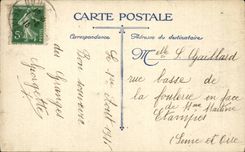 CARTE POSTALE
Correspondance
Adresse du destinataire
Le 1er Août 1916
Bon souvenir
des Granges
Georgette
Melle S. Gaillard
rue basse de
la foulerie en face
de Mme
Etampes
Seine et Oise
5c